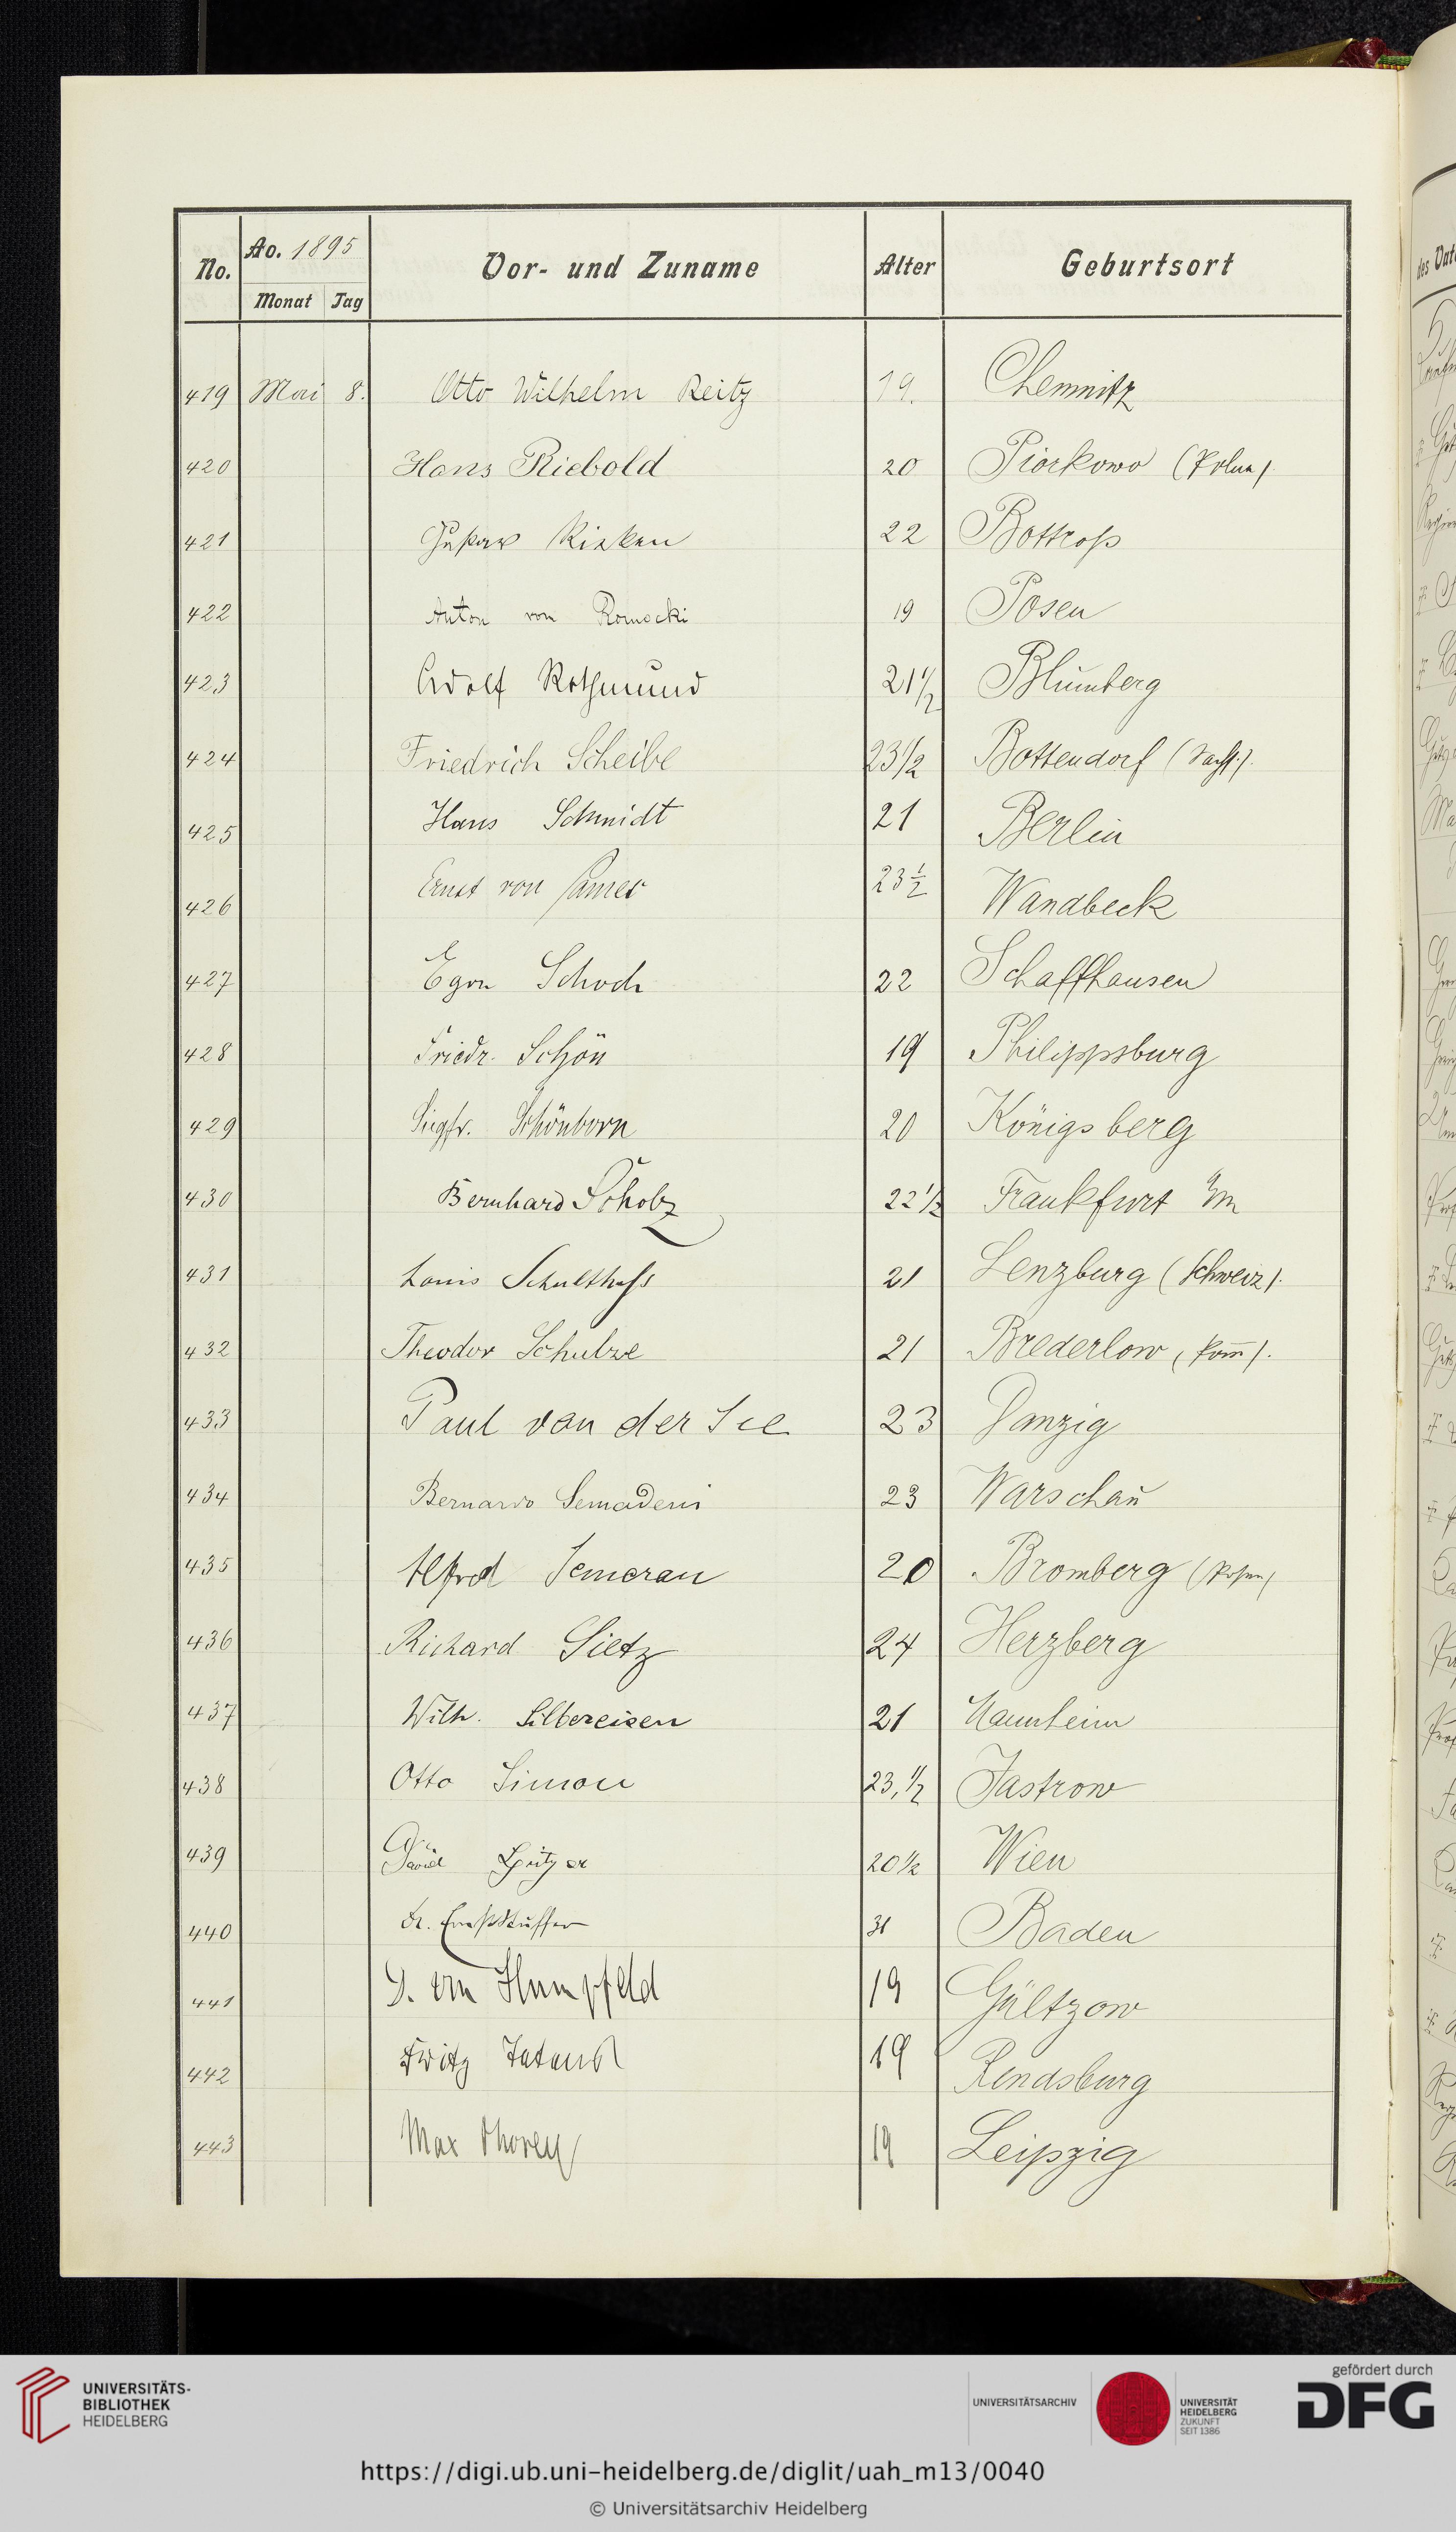 No. Ao. 1895 Vor- und Zuname Alter Geburtsort
Monat Tag
419 Mai 8. Otto Wilhelm Reitz 19. Chemnitz
420 Hans Riebold 20 Piorkowo (Polen).
421 Gustav Risken 22 Bottrop
422 Anton von Romocki 19 Posen
423 Adolf Rothmund 21 1/2 Blumberg
424 Friedrich Scheibe 23 1/2 Bottendorf (Sachs.).
425 Hans Schmidt 21 Berlin
426 Ernst von 23 1/2 Wandbeck
427 Egon Schoch 22 Schaffhausen
428 Friedr. Schön 19 Philippsburg
429 Siegfr. Schönborn 20 Königsberg
430 Bernhard Scholz 22 1/2 Frankfurt a/M
431 Louis Schulthess 21 Lenzburg (Schweiz).
432 Theodor Schulze 21 Brederlow (Pom̄).
433 Paul van der See 23 Danzig
434 Bernardo Semadeni 23 Warschau
435 Alfred Semerau 20 Bromberg (Posen)
436 Richard Sietz 24 Herzberg
437 Wilh. Silbereisen 21 Mannheim
438 Otto Simon 23,1/2 Jastrow
439 David Spitzer 20 1/2 Wien
440 Dr. Ernst 31 Baden
441 von 19 Gültzow
442 Fritz 19 Rendsburg
443 Max 19 Leipzig
des
UNIVERSITÄTS-
BIBLIOTHEK
HEIDELBERG
UNIVERSITÄTSARCHIV
UNIVERSITÄT
HEIDELBERG
ZUKUNFT
SEIT 1386
gefördert durch
DFG
https://digi.ub.uni-heidelberg.de/diglit/uah_m13/0040
© Universitätsarchiv Heidelberg